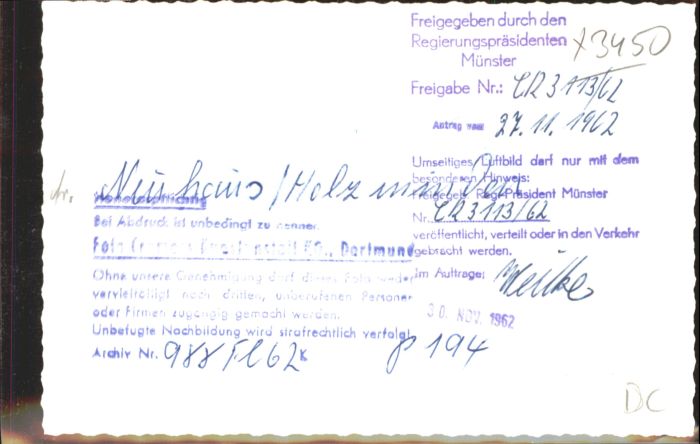 Freigegeben durch den
Regierungspräsidenten
Münster
x3450
Freigabe Nr.: CR 3113/62
Antrag vom 27.11.1962
Neuhaus / Holzminden
Umseitiges Luftbild darf nur mit dem
besonderen Hinweis:
Freigegeb. Reg.-Präsident Münster
Nr. CR 3113/62
veröffentlicht, verteilt oder in den Verkehr
gebracht werden.
Im Auftrage:
30. NOV. 1962
Bei Abdruck ist unbedingt zu nennen:
Foto Cramers Kunstanstalt KG., Dortmund
Ohne unsere Genehmigung darf dieses Foto weder
vervielfältigt noch dritten, unberufenen Personen
oder Firmen zugängig gemacht werden.
Unbefugte Nachbildung wird strafrechtlich verfolgt
Archiv Nr. 988 Fl 62 K
p 194
DC